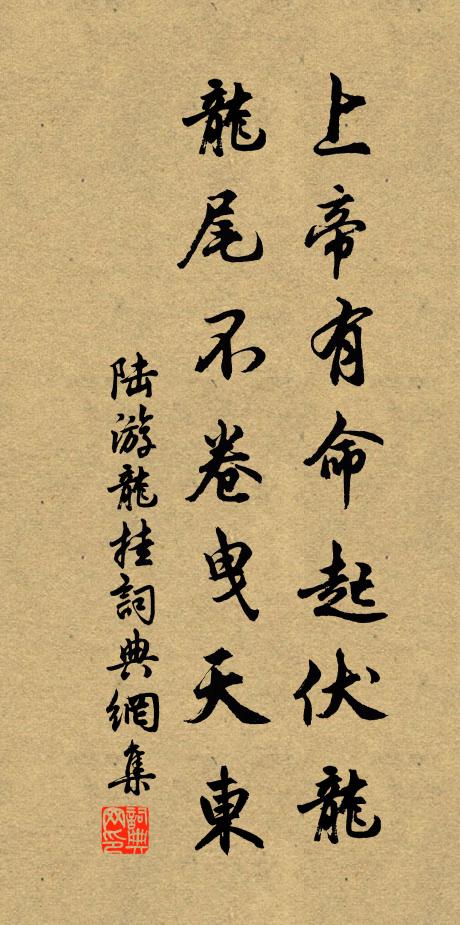 上帝有命起伏龍
龍尾不卷曳天東
陆游龍挂詞典網集
詞典网印